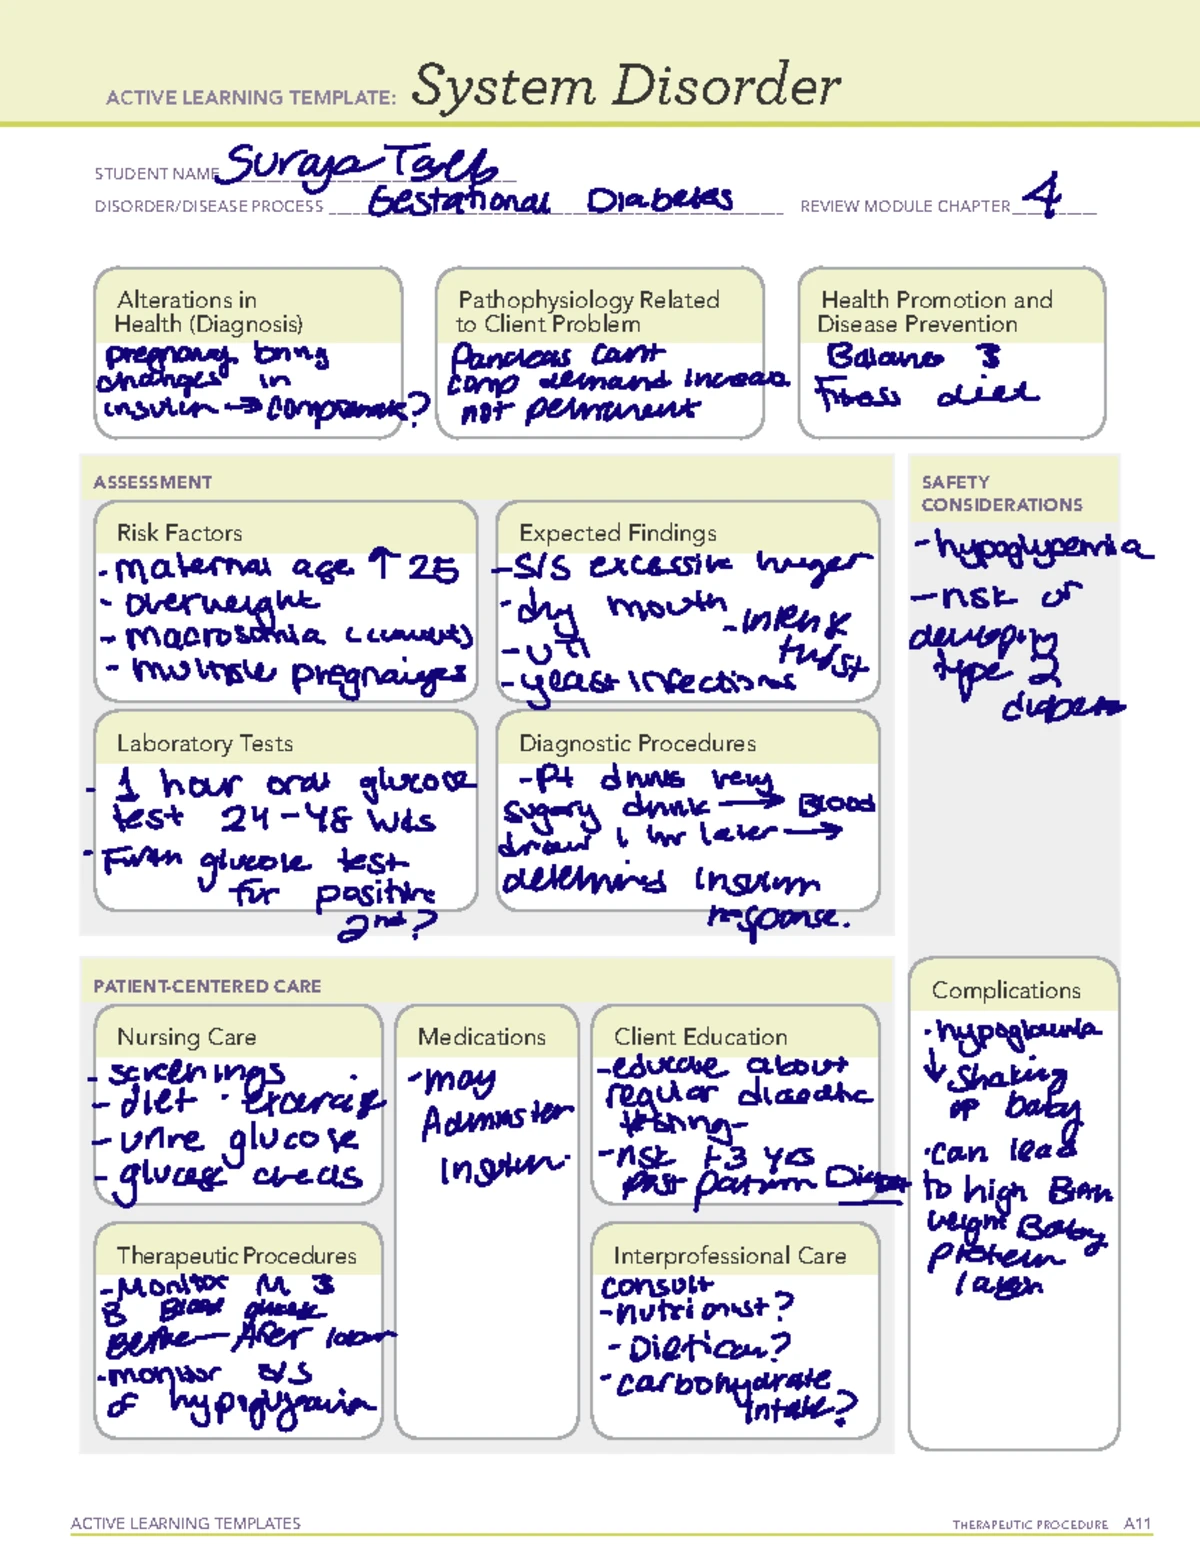 ACTIVE LEARNING TEMPLATE: System Disorder
STUDENT NAME Suraja
DISORDER/DISEASE PROCESS Gestational Diabetes REVIEW MODULE CHAPTER 4
Alterations in
Health (Diagnosis)
pregnancy bring
changes in
insulin →
Pathophysiology Related
to Client Problem
Pancreas cant
comp demand increas
not permanent
Health Promotion and
Disease Prevention
Balance &
Fitness diet
ASSESSMENT
Risk Factors
- maternal age ↑ 25
- overweight
- macrosomia (current)
- multiple
Expected Findings
- S/S excessive hunger
- dry mouth
- intense
thirst
- UTI
- yeast infections
SAFETY
CONSIDERATIONS
- hypoglycemia
- risk of
developing
type 2
diabetes
Laboratory Tests
- 1 hour oral glucose
test 24-48 wks
- glucose test
for positive
2nd?
Diagnostic Procedures
- Pt drinks very
sugary drink → Blood
draw 1 hr later →
determined insulin
response.
PATIENT-CENTERED CARE
Nursing Care
- screenings
- diet · exercise
- urine glucose
- glucose checks
Medications
- may
Administer
insulin.
Client Education
- educate about
regular diabetic
testing -
- risk 1-3 yrs
post partum
Complications
· hypoglycemia
↓ shaking
of baby
· can lead
to high Birth
weight Baby
Therapeutic Procedures
- Monitor M &
B Blood
Before - After labor
- monitor S/S
of hypoglycemia
Interprofessional Care
consult
- nutrionist?
- Dietican?
- carbohydrate
intake?
ACTIVE LEARNING TEMPLATES
THERAPEUTIC PROCEDURE A11